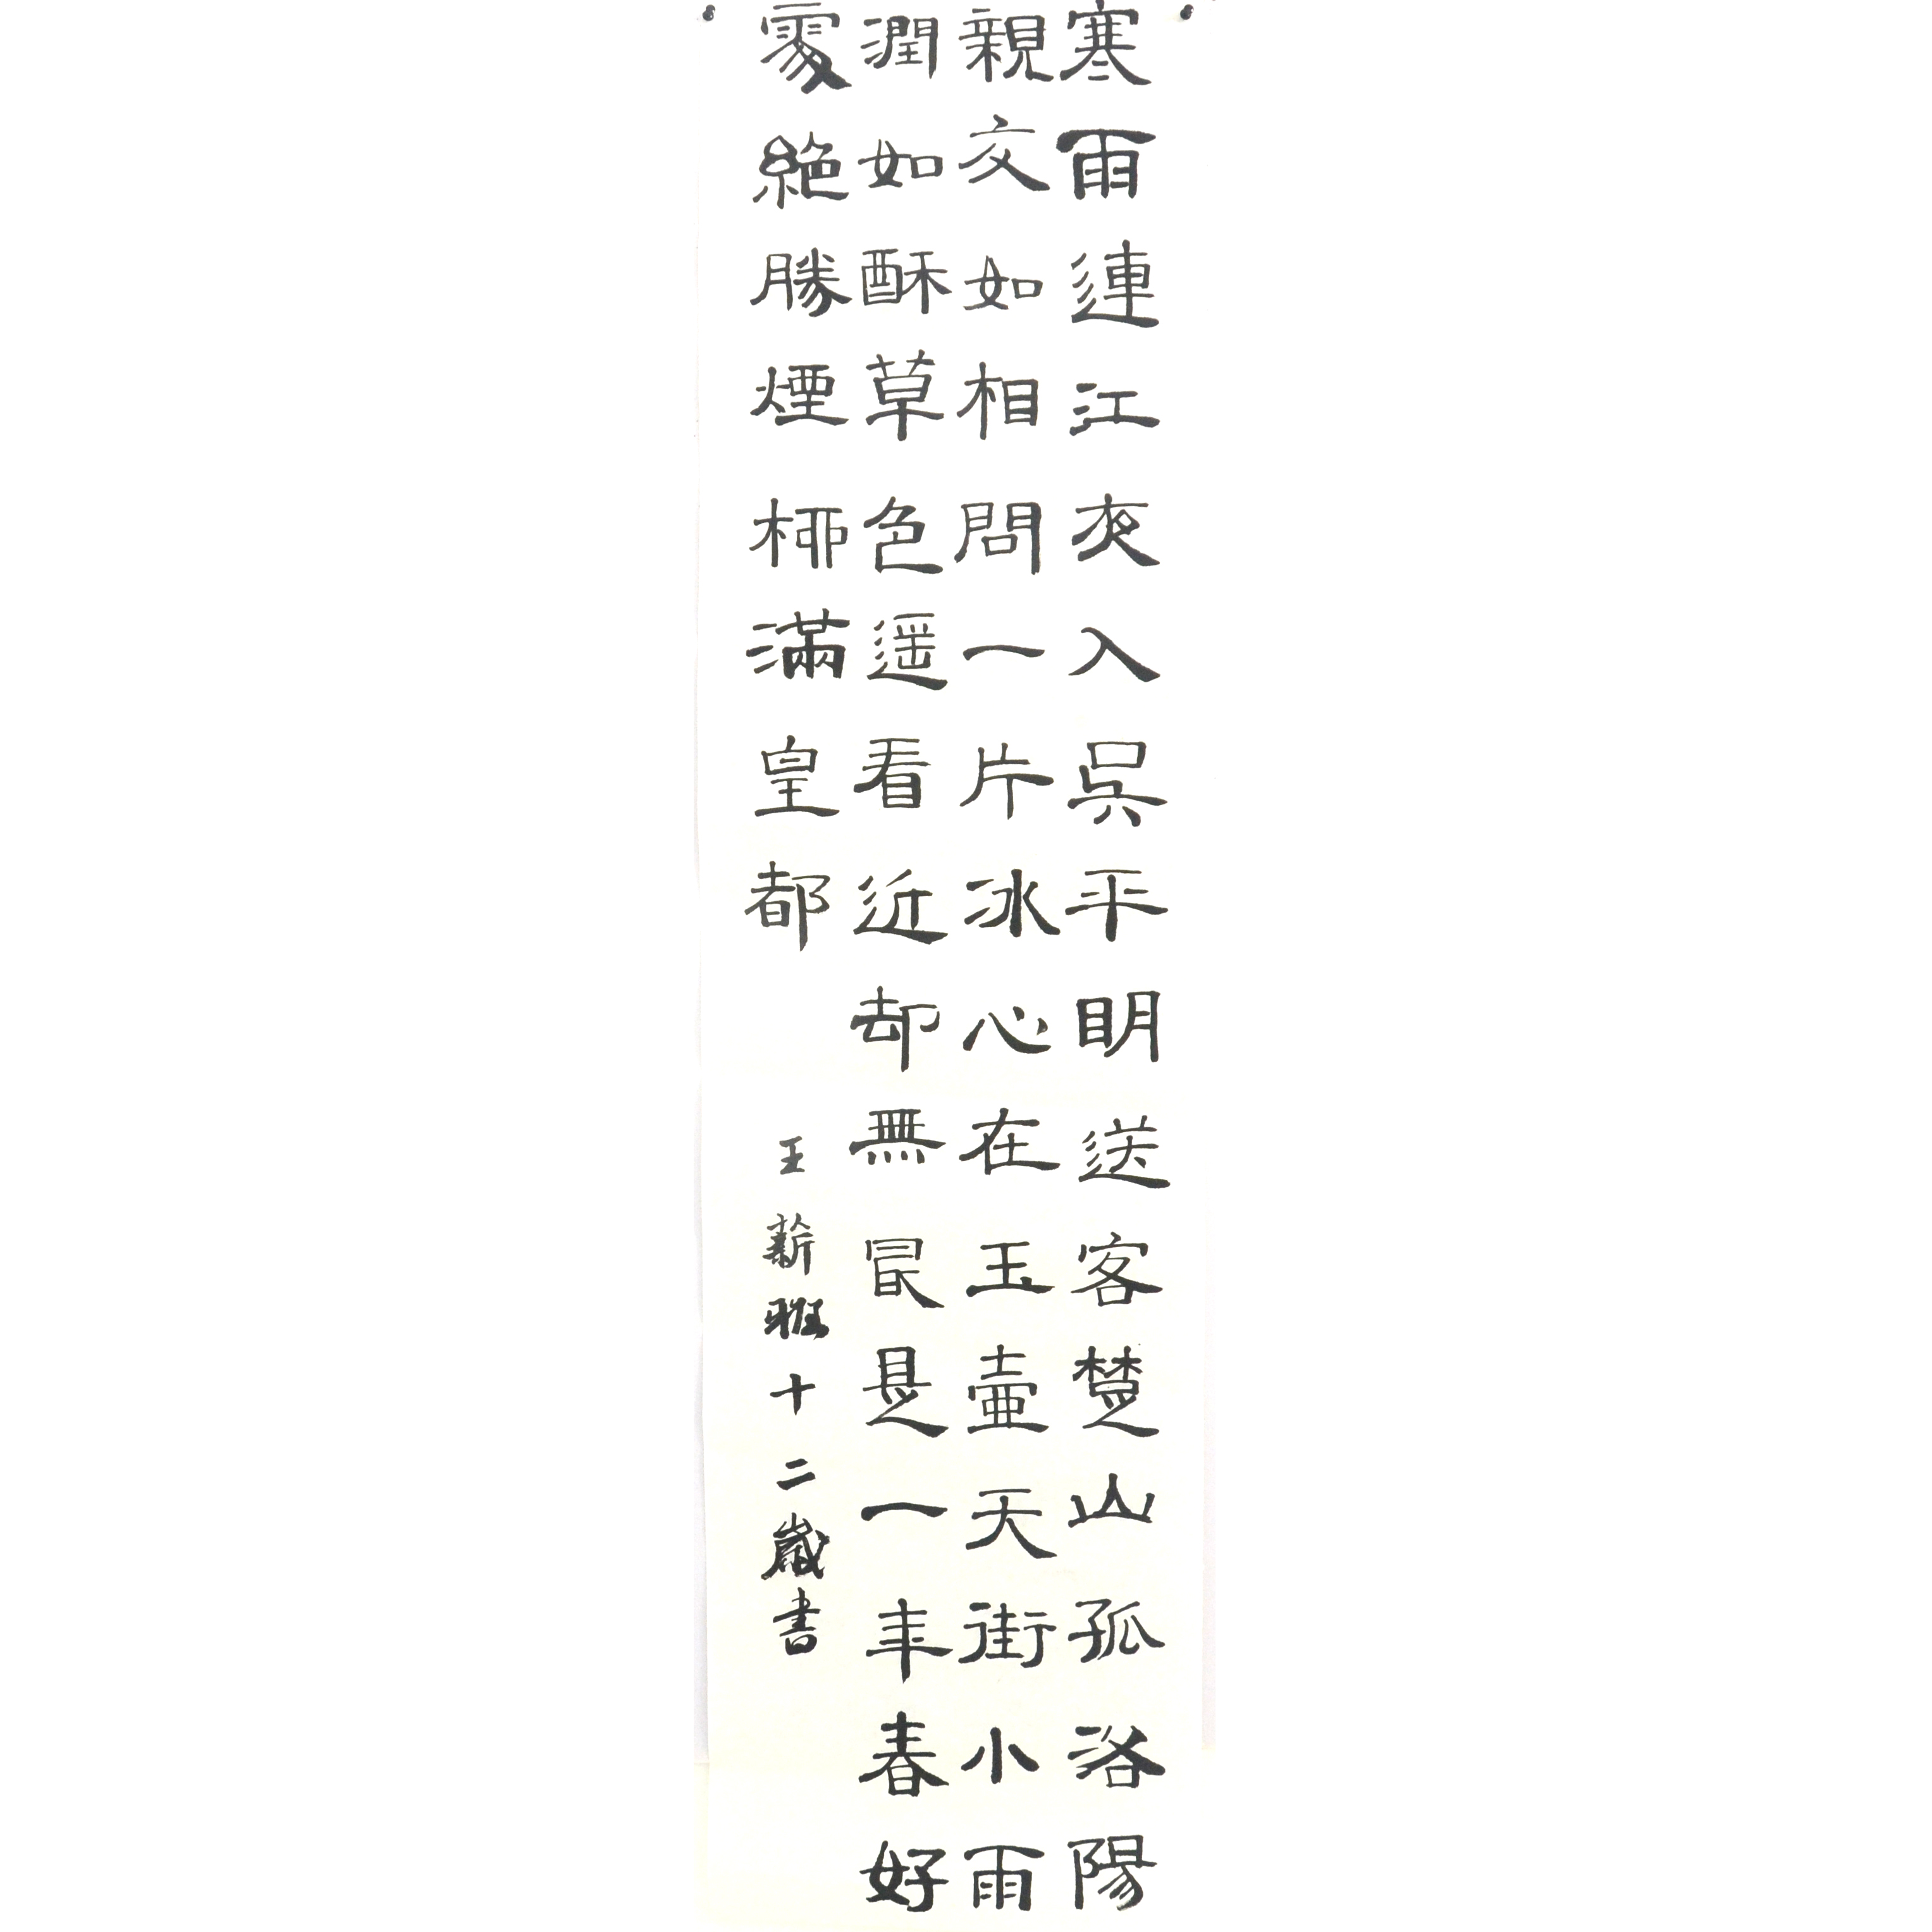 寒雨連江夜入吳平明送客楚山孤洛陽
親友如相問一片冰心在玉壺天街小雨
潤如酥草色遥看近却無最是一年春好
處絕勝煙柳滿皇都
王薪雅十二歲書